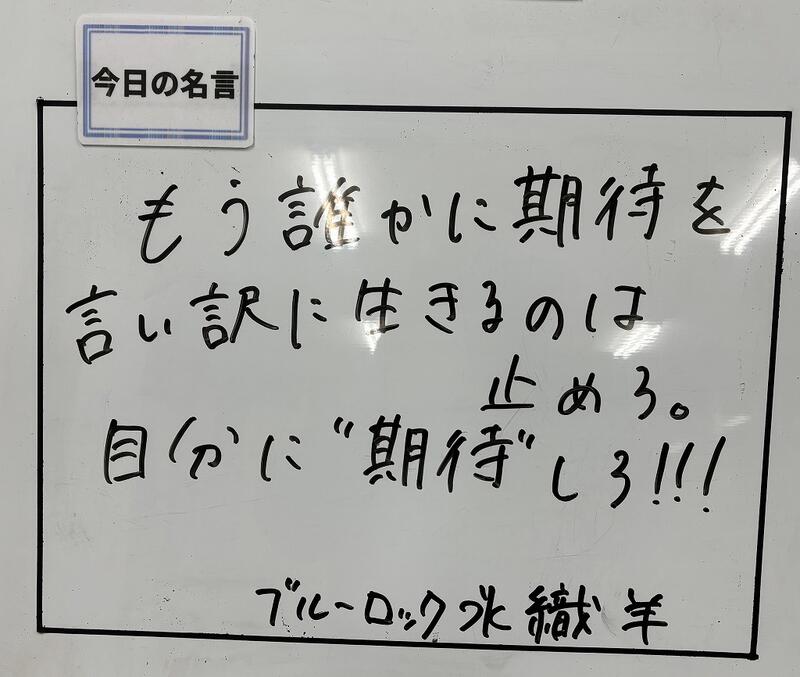 今日の名言
もう誰かに期待を
言い訳に生きるのは
止めろ。
自分に"期待"しろ!!!
ブルーロック 氷織羊